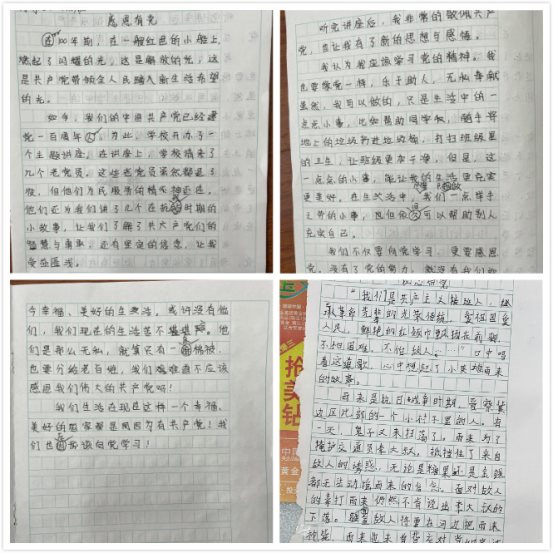 感恩有党
在100年期,在一艘红色的小船上,
燃起了闪耀的光,这是解放的光,这
是共产党带领全人民踏入新生活希望
的光。
如今,我们的中国共产党已经建
党一百周年了,为此,学校开办了一
个主题讲座,在讲座上,学校请来了
几个老党员,这些老党员虽然都退了
役,但他们为民服务的精神还在,
他们还为我们讲了几个在抗战时期的
小故事,让我们了解了共产党们的
智慧与勇敢,还有坚定的信念,让我
受益匪浅。
听完讲座后,我非常的敬佩共产
党,也让我有了新的思想与感悟。
我认为我应该学习党的精神。我
也要像党一样,乐于助人,无私奉献
虽然,我可以做的,只是生活中的一
点点小事,比如帮助同学,随手将
地上的垃圾扔进垃圾桶,打扫班级里
的卫生,让班级更加干净,但是,这
一点点的小事,能让我的生活更充实
更美好。在生活中,我们一点举手
之劳的小事,既但也可以帮助别人
充实自己。
我们不仅要向党学习,更要感恩
党,没有了党的努力,就没有我们如
今幸福、美好的生活,或许没有他
们,我们现在的生活苦不堪言。他
们是那么无私,就算只有一条棉被,
也要分给老百姓,我们难道不应该
感恩我们伟大的共产党吗!
我们生活在现在这样一个幸福、
美好的国家都是因为有共产党!我
们也应该向党学习!
抢
美
钻
黄金
“我们是共产主义接班人,继
承革命先辈的光荣传统,爱祖国爱
人民,鲜艳的红领巾飘扬在前胸,
不怕困难,不怕敌人。…”口中唱
着这首歌,心中想起了小英雄雨来
的故事。
雨来是抗日战争时期,晋察冀
边区北部的一个小村子里的人。有
一天,鬼子又来扫荡了。雨来为了
掩护交通员李大叔,抵挡住了来自
敌人的诱惑,无论是糖果还是金钱
都无法动摇雨来的信念。面对敌人
的毒打雨来仍然不肯说出李大叔的
下落。